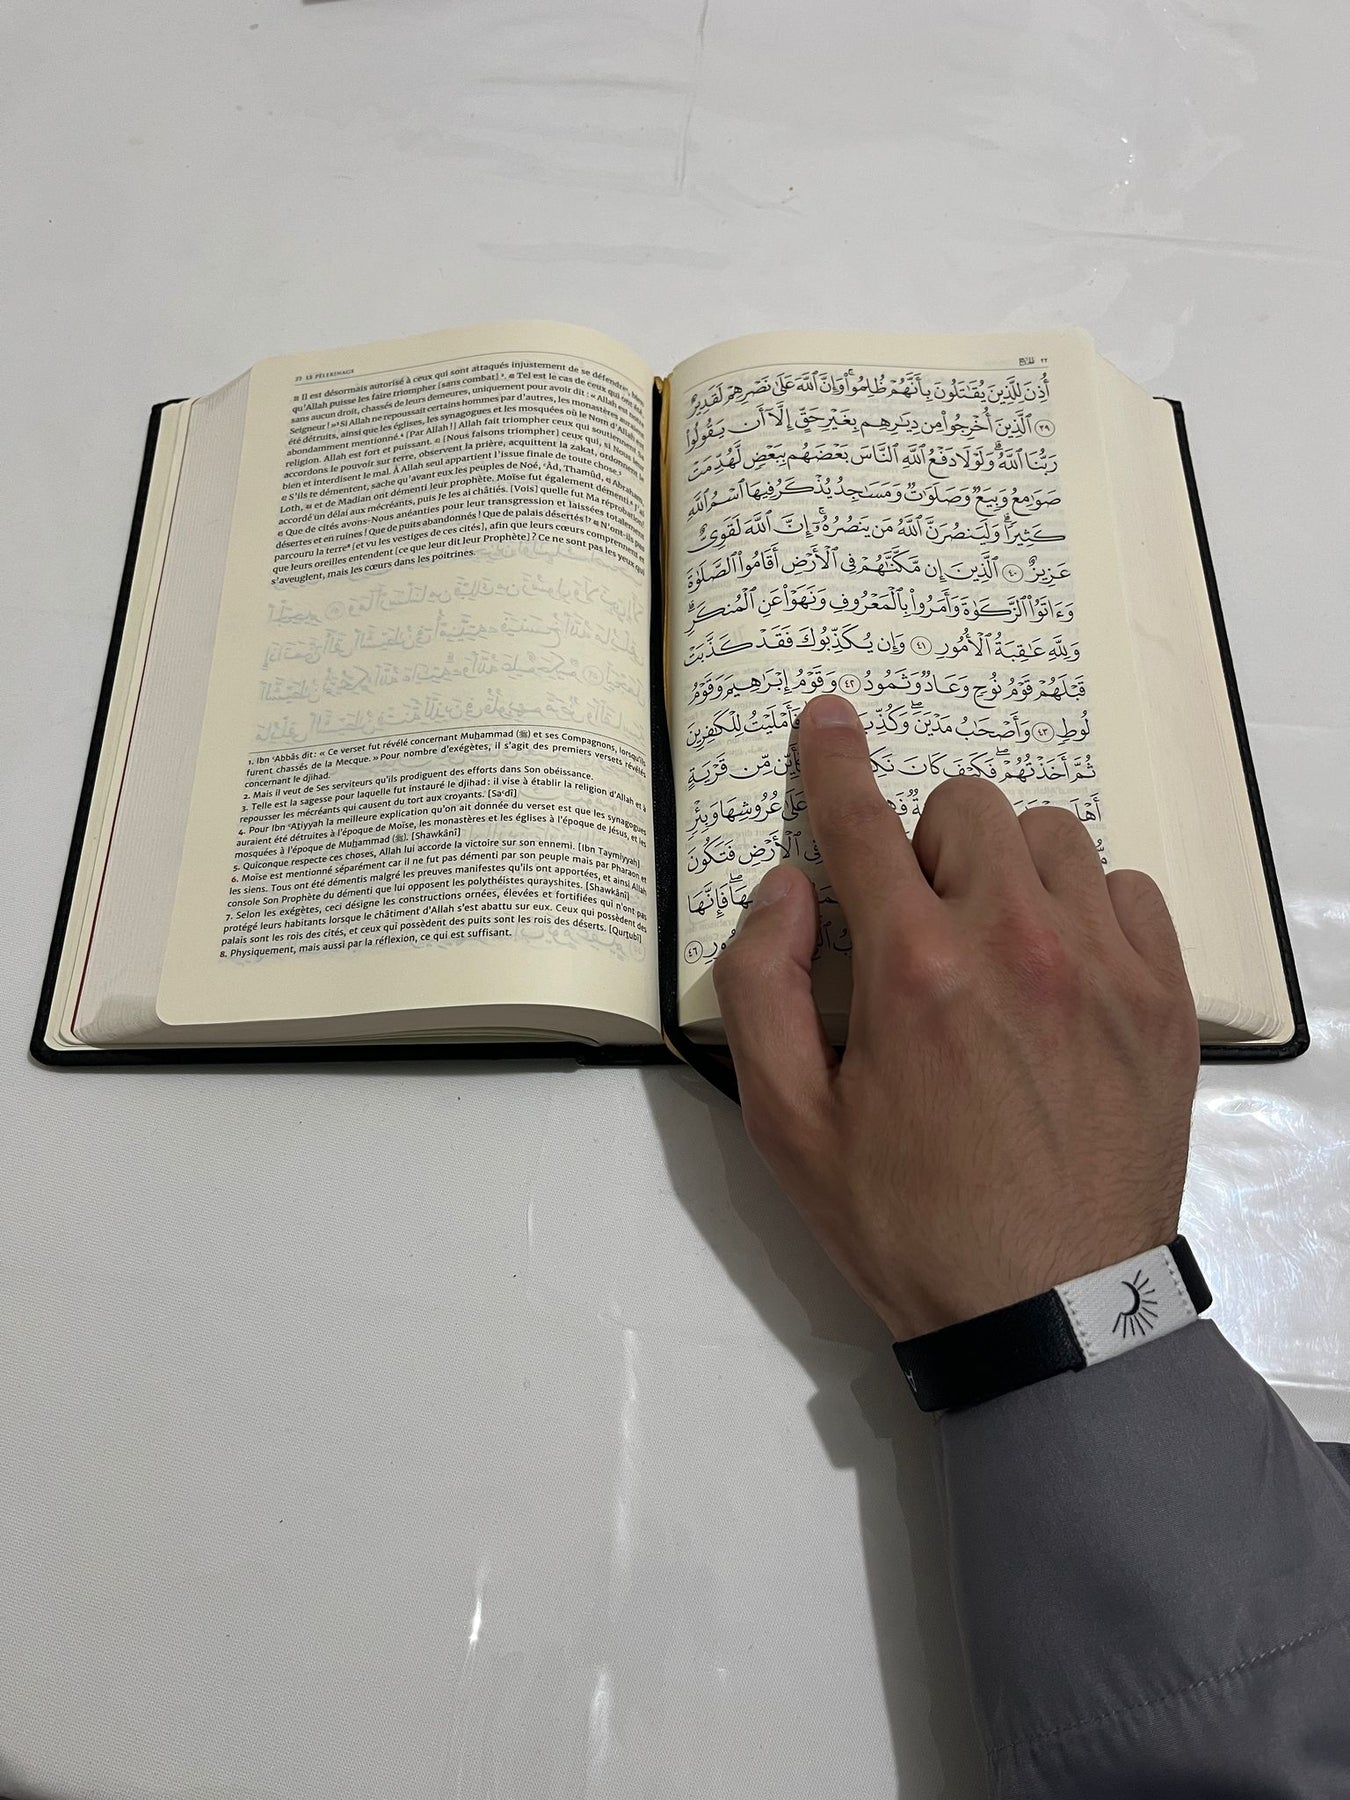 22 LE PÈLERINAGE
39 Il est désormais autorisé à ceux qui sont attaqués injustement de se défendre
qu'Allah puisse les faire triompher [sans combat]². 40 Tel est le cas de ceux qui ont été
sans aucun droit, chassés de leurs demeures, uniquement pour avoir dit : « Allah est notre
Seigneur ! »³ Si Allah ne repoussait certains hommes par d'autres, les monastères auraient
été détruits, ainsi que les églises, les synagogues et les mosquées où le Nom d'Allah est
abondamment mentionné.⁴ [Par Allah !] Allah fait triompher ceux qui soutiennent Sa
religion. Allah est fort et puissant. 41 [Nous faisons triompher] ceux qui, si Nous leur
accordons le pouvoir sur terre, observent la prière, acquittent la zakat, ordonnent le
bien et interdisent le mal. À Allah seul appartient l'issue finale de toute chose.⁵
42 S'ils te démentent, sache qu'avant eux les peuples de Noé, ʿÂd, Thamûd, 43 Abraham
Loth, 44 et de Madian ont démenti leur prophète. Moïse fut également démenti.⁶ J'ai
accordé un délai aux mécréants, puis Je les ai châtiés. [Vois] quelle fut Ma réprobation !
45 Que de cités avons-Nous anéanties pour leur transgression et laissées totalement
désertes et en ruines ! Que de puits abandonnés ! Que de palais désertés !⁷ 46 N'ont-ils pas
parcouru la terre⁸ [et vu les vestiges de ces cités], afin que leurs cœurs comprennent et
que leurs oreilles entendent [ce que leur dit leur Prophète] ? Ce ne sont pas les yeux qui
s'aveuglent, mais les cœurs dans les poitrines.
1. Ibn ʿAbbâs dit : « Ce verset fut révélé concernant Muḥammad (ﷺ) et ses Compagnons, lorsqu'ils
furent chassés de la Mecque. » Pour nombre d'exégètes, il s'agit des premiers versets révélés
concernant le djihad.
2. Mais il veut de Ses serviteurs qu'ils prodiguent des efforts dans Son obéissance.
3. Telle est la sagesse pour laquelle fut instauré le djihad : il vise à établir la religion d'Allah et à
repousser les mécréants qui causent du tort aux croyants. [Saʿdî]
4. Pour Ibn ʿAṭiyyah la meilleure explication qu'on ait donnée du verset est que les synagogues
auraient été détruites à l'époque de Moïse, les monastères et les églises à l'époque de Jésus, et les
mosquées à l'époque de Muḥammad (ﷺ). [Shawkânî]
5. Quiconque respecte ces choses, Allah lui accorde la victoire sur son ennemi. [Ibn Taymiyyah]
6. Moïse est mentionné séparément car il ne fut pas démenti par son peuple mais par Pharaon et
les siens. Tous ont été démentis malgré les preuves manifestes qu'ils ont apportées, et ainsi Allah
console Son Prophète du démenti que lui opposent les polythéistes qurayshites. [Shawkânî]
7. Selon les exégètes, ceci désigne les constructions ornées, élevées et fortifiées qui n'ont pas
protégé leurs habitants lorsque le châtiment d'Allah s'est abattu sur eux. Ceux qui possèdent des
palais sont les rois des cités, et ceux qui possèdent des puits sont les rois des déserts. [Qurṭubî]
8. Physiquement, mais aussi par la réflexion, ce qui est suffisant.
٢٢ الحج
أُذِنَ لِلَّذِينَ يُقَٰتَلُونَ بِأَنَّهُمْ ظُلِمُوا۟ ۚ وَإِنَّ ٱللَّهَ عَلَىٰ نَصْرِهِمْ لَقَدِيرٌ
٣٩ ٱلَّذِينَ أُخْرِجُوا۟ مِن دِيَٰرِهِم بِغَيْرِ حَقٍّ إِلَّآ أَن يَقُولُوا۟
رَبُّنَا ٱللَّهُ ۗ وَلَوْلَا دَفْعُ ٱللَّهِ ٱلنَّاسَ بَعْضَهُم بِبَعْضٍ لَّهُدِّمَتْ
صَوَٰمِعُ وَبِيَعٌ وَصَلَوَٰتٌ وَمَسَٰجِدُ يُذْكَرُ فِيهَا ٱسْمُ ٱللَّهِ
كَثِيرًا ۗ وَلَيَنصُرَنَّ ٱللَّهُ مَن يَنصُرُهُۥٓ ۗ إِنَّ ٱللَّهَ لَقَوِىٌّ
عَزِيزٌ ٤٠ ٱلَّذِينَ إِن مَّكَّنَّٰهُمْ فِى ٱلْأَرْضِ أَقَامُوا۟ ٱلصَّلَوٰةَ
وَءَاتَوُا۟ ٱلزَّكَوٰةَ وَأَمَرُوا۟ بِٱلْمَعْرُوفِ وَنَهَوْا۟ عَنِ ٱلْمُنكَرِ ۗ
وَلِلَّهِ عَٰقِبَةُ ٱلْأُمُورِ ٤١ وَإِن يُكَذِّبُوكَ فَقَدْ كَذَّبَتْ
قَبْلَهُمْ قَوْمُ نُوحٍ وَعَادٌ وَثَمُودُ ٤٢ وَقَوْمُ إِبْرَٰهِيمَ وَقَوْمُ
لُوطٍ ٤٣ وَأَصْحَٰبُ مَدْيَنَ ۖ وَكُذِّبَ فَأَمْلَيْتُ لِلْكَٰفِرِينَ
ثُمَّ أَخَذْتُهُمْ ۖ فَكَيْفَ كَانَ مِّن قَرْيَةٍ
عَلَىٰ عُرُوشِهَا وَبِئْرٍ
فِى ٱلْأَرْضِ فَتَكُونَ
فَإِنَّهَا
٤٦